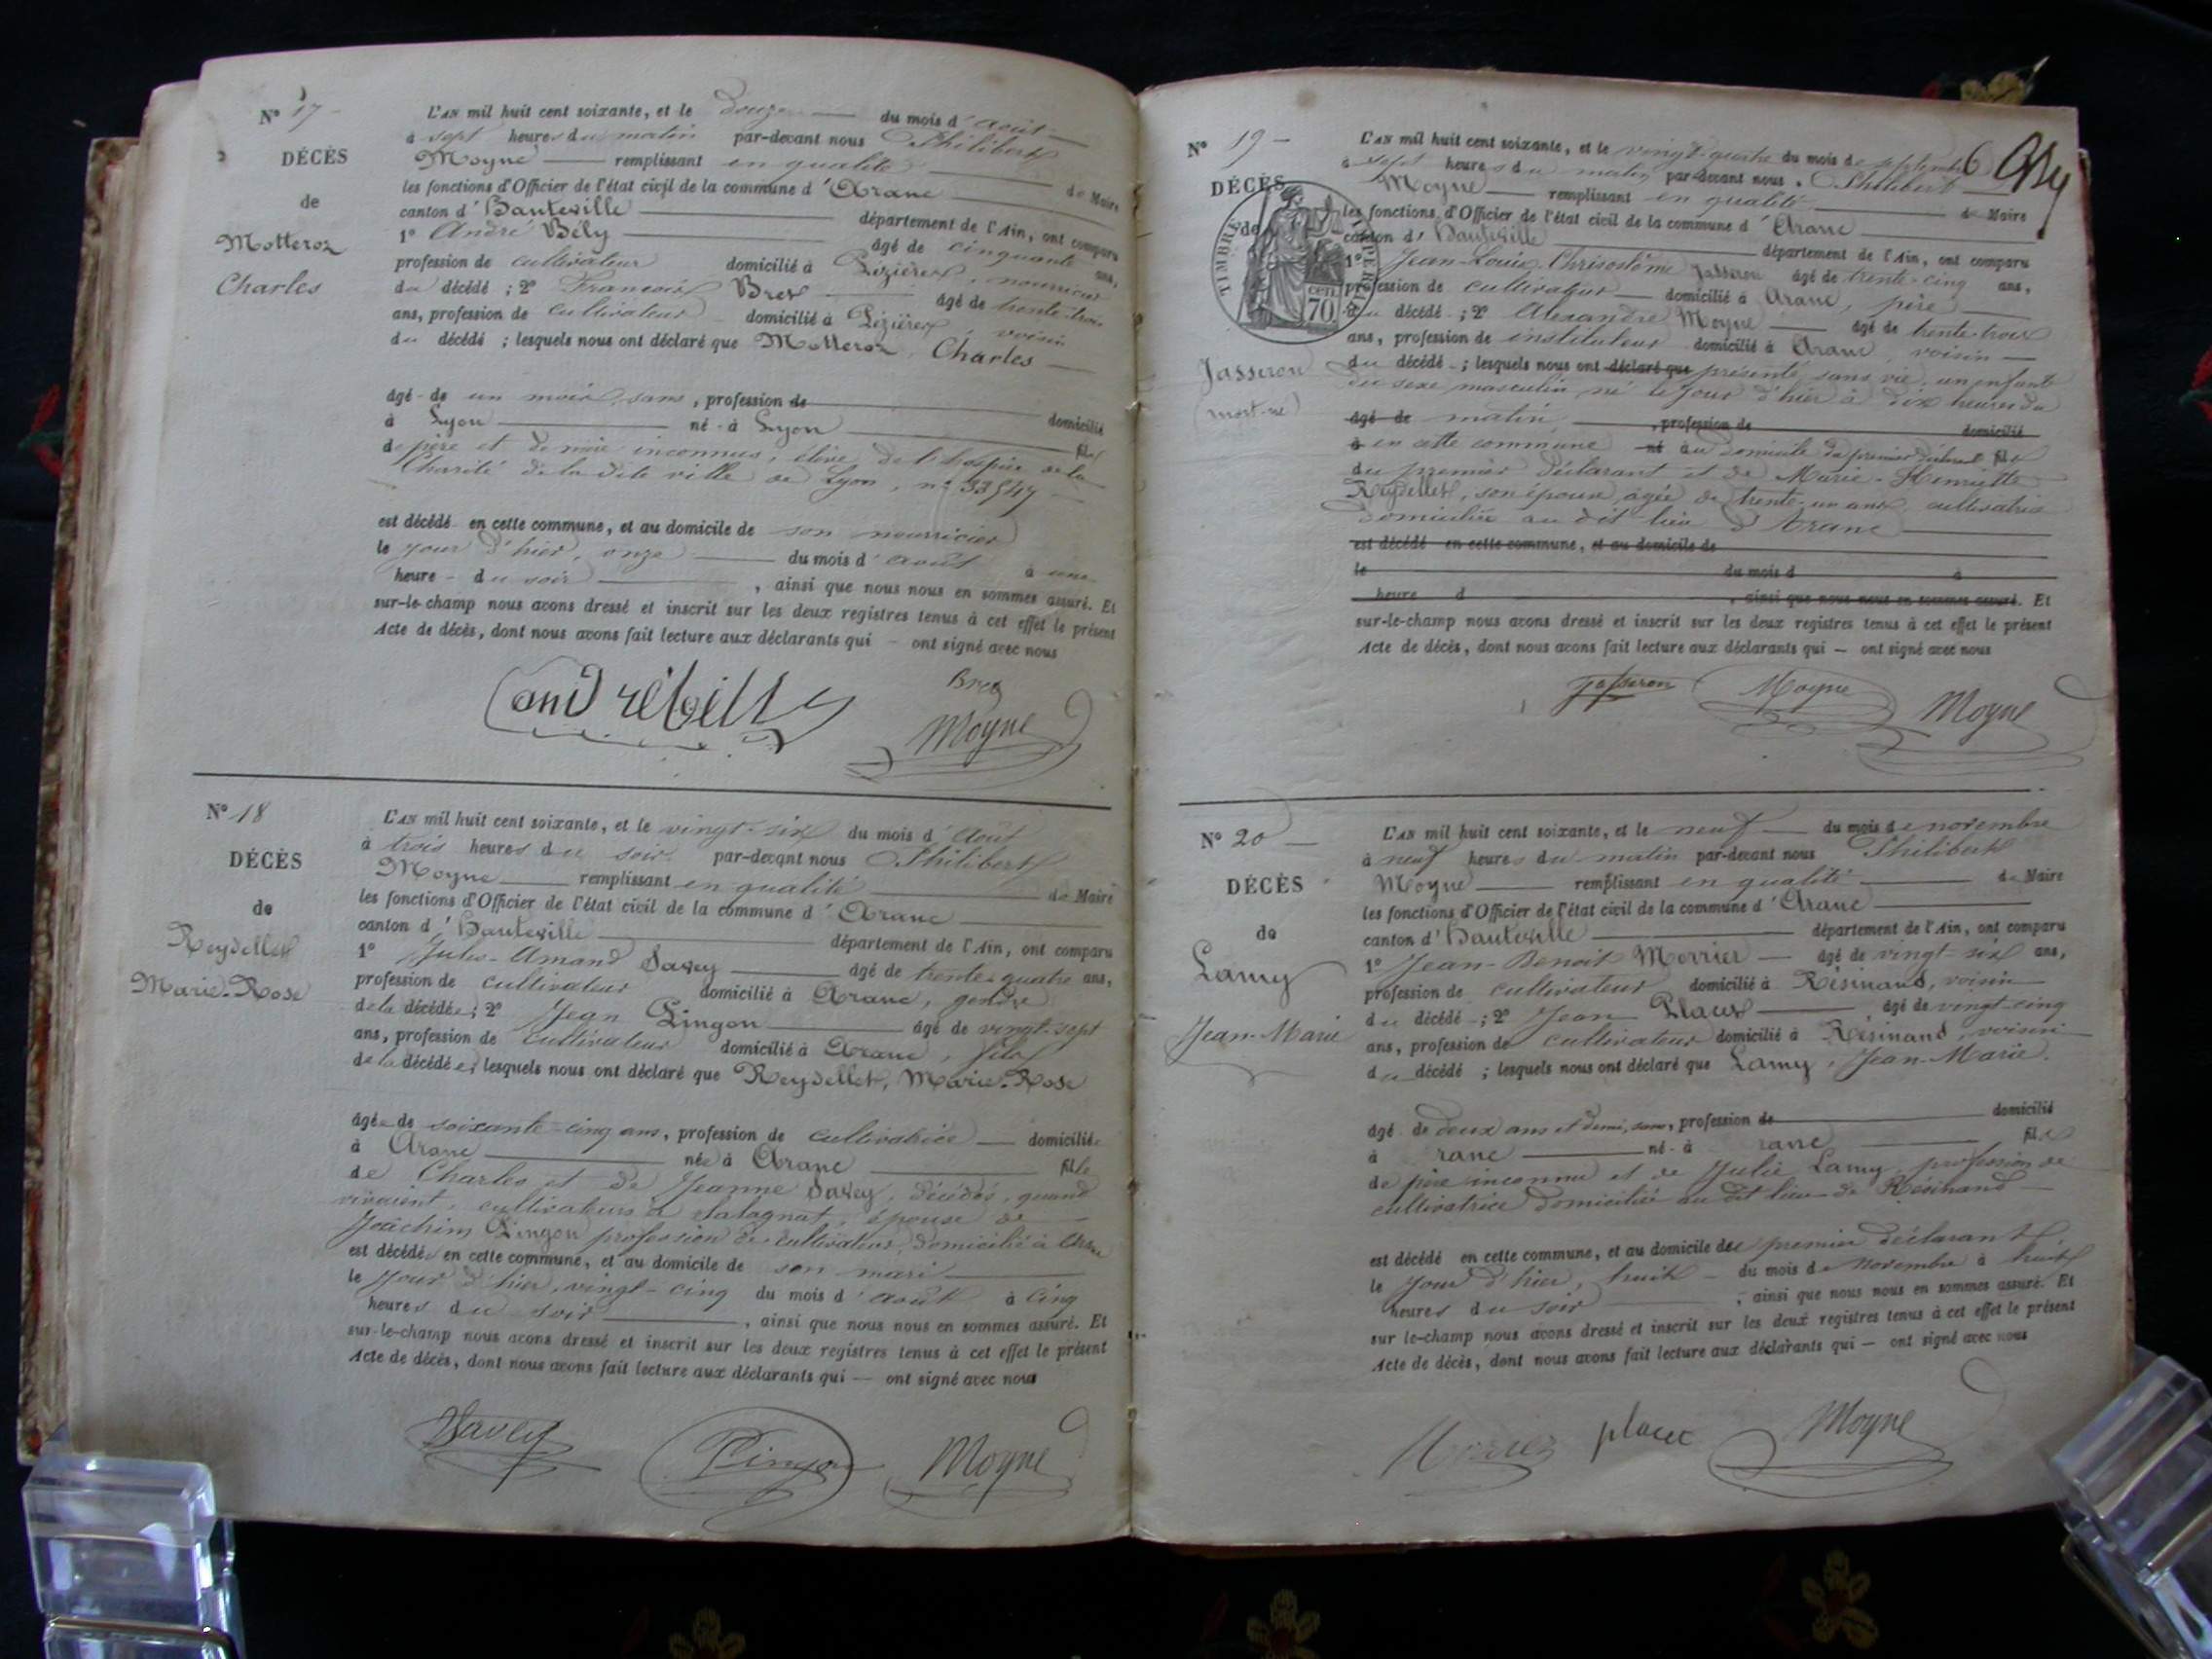 N° 17
DÉCÈS
de
Motteroz
Charles
L'AN mil huit cent soixante, et le douze du mois d'août
à sept heures du matin par-devant nous Philibert
Moyne remplissant en qualité de Maire
les fonctions d'Officier de l'état civil de la commune d'Aranc
canton d'Hauteville département de l'Ain, ont comparu
1° André Bély âgé de cinquante ans,
profession de cultivateur domicilié à Lézières, nourricier
du décédé ; 2° François Bret âgé de trente-trois
ans, profession de cultivateur domicilié à Lézières, voisin
du décédé ; lesquels nous ont déclaré que Motteroz, Charles
âgé de un mois, sans, profession de domicilié
à Lyon né à Lyon fils
de père et de mère inconnus, élève de l'hospice de la
Charité de la dite ville de Lyon, n° 33547
est décédé en cette commune, et au domicile de son nourricier
le jour d'hier, onze du mois d'août à une
heure du soir, ainsi que nous nous en sommes assuré. Et
sur-le-champ nous avons dressé et inscrit sur les deux registres tenus à cet effet le présent
Acte de décès, dont nous avons fait lecture aux déclarants qui — ont signé avec nous
andrébelly
Bret
Moyne
N° 18
DÉCÈS
de
Reydellet
Marie-Rose
L'AN mil huit cent soixante, et le vingt-six du mois d'août
à trois heures du soir par-devant nous Philibert
Moyne remplissant en qualité de Maire
les fonctions d'Officier de l'état civil de la commune d'Aranc
canton d'Hauteville département de l'Ain, ont comparu
1° Jules-Amand Savey âgé de trente-quatre ans,
profession de cultivateur domicilié à Aranc, gendre
de la décédée ; 2° Jean Pingon âgé de vingt-sept
ans, profession de cultivateur domicilié à Aranc, fils
de la décédée ; lesquels nous ont déclaré que Reydellet, Marie-Rose
âgée de soixante-cinq ans, profession de cultivatrice domiciliée
à Aranc née à Aranc fille
de Charles et de Jeanne Savey, décédés, quand
vivaient, cultivateurs à , épouse de
Joachim Pingon profession de cultivateur, domicilié à Aranc
est décédée en cette commune, et au domicile de son mari
le jour d'hier, vingt-cinq du mois d'août à cinq
heures du soir, ainsi que nous nous en sommes assuré. Et
sur-le-champ nous avons dressé et inscrit sur les deux registres tenus à cet effet le présent
Acte de décès, dont nous avons fait lecture aux déclarants qui — ont signé avec nous
Savey
Pingon
Moyne
6
N° 19
DÉCÈS
de
TIMBRE IMPERIAL
70 cen.
Jasseron
(mort-né)
L'AN mil huit cent soixante, et le vingt-quatre du mois de septembre
à sept heures du matin par-devant nous Philibert
Moyne remplissant en qualité de Maire
les fonctions d'Officier de l'état civil de la commune d'Aranc
canton d'Hauteville département de l'Ain, ont comparu
1° Jean-Louis Chrisostôme Jasseron âgé de trente-cinq ans,
profession de cultivateur domicilié à Aranc, père
du décédé ; 2° Alexandre Moyne âgé de trente-trois
ans, profession de instituteur domicilié à Aranc, voisin
du décédé ; lesquels nous ont déclaré que présenté sans vie, un enfant
du sexe masculin né le jour d'hier à dix heures du
âgé de matin, profession de domicilié
à en cette commune né au domicile du premier déclarant fils
du premier déclarant et de Marie-Henriette
Reydellet, son épouse, agée de trente-un ans, cultivatrice
domiciliée au dit lieu d'Aranc
est décédé en cette commune, et au domicile de
le du mois d à
heure d , ainsi que nous nous en sommes assuré. Et
sur-le-champ nous avons dressé et inscrit sur les deux registres tenus à cet effet le présent
Acte de décès, dont nous avons fait lecture aux déclarants qui — ont signé avec nous
Jasseron
Moyne
Moyne
N° 20
DÉCÈS
de
Lamy
Jean-Marie
L'AN mil huit cent soixante, et le neuf du mois de novembre
à neuf heures du matin par-devant nous Philibert
Moyne remplissant en qualité de Maire
les fonctions d'Officier de l'état civil de la commune d'Aranc
canton d'Hauteville département de l'Ain, ont comparu
1° Jean-Benoit Morrier âgé de vingt-six ans,
profession de cultivateur domicilié à Résinand, voisin
du décédé ; 2° Jean Placet âgé de vingt-cinq
ans, profession de cultivateur domicilié à Résinand, voisin
du décédé ; lesquels nous ont déclaré que Lamy, Jean-Marie.
âgé de deux ans et demi, sans, profession de domicilié
à ranc né à ranc fils
de père inconnu et de Julie Lamy, profession de
cultivatrice domiciliée au dit lieu de Résinand
est décédé en cette commune, et au domicile de premier déclarant
le jour d'hier, huit du mois de novembre à huit
heures du soir, ainsi que nous nous en sommes assuré. Et
sur le-champ nous avons dressé et inscrit sur les deux registres tenus à cet effet le présent
Acte de décès, dont nous avons fait lecture aux déclarants qui — ont signé avec nous
placet
Moyne